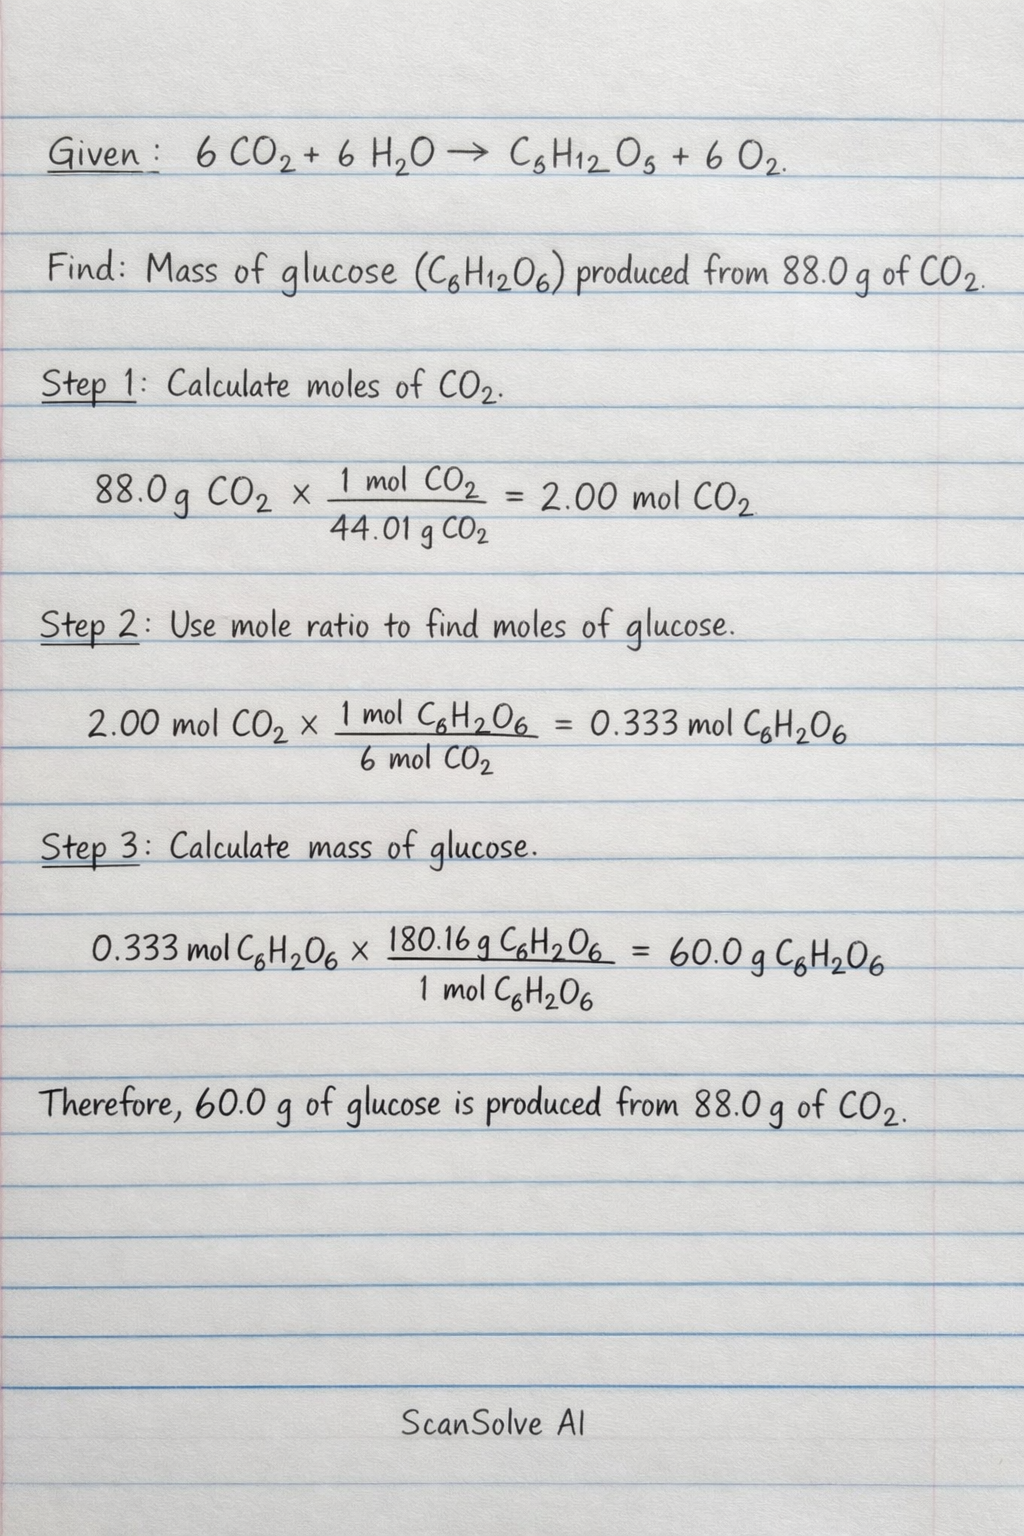 Given: 6 CO₂ + 6 H₂O → C₅H₁₂O₅ + 6 O₂.
Find: Mass of glucose (C₆H₁₂O₆) produced from 88.0 g of CO₂.
Step 1: Calculate moles of CO₂.
88.0 g CO₂ × 1 mol CO₂ / 44.01 g CO₂ = 2.00 mol CO₂
Step 2: Use mole ratio to find moles of glucose.
2.00 mol CO₂ × 1 mol C₆H₂O₆ / 6 mol CO₂ = 0.333 mol C₆H₂O₆
Step 3: Calculate mass of glucose.
0.333 mol C₆H₂O₆ × 180.16 g C₆H₂O₆ / 1 mol C₆H₂O₆ = 60.0 g C₆H₂O₆
Therefore, 60.0 g of glucose is produced from 88.0 g of CO₂.
ScanSolve AI